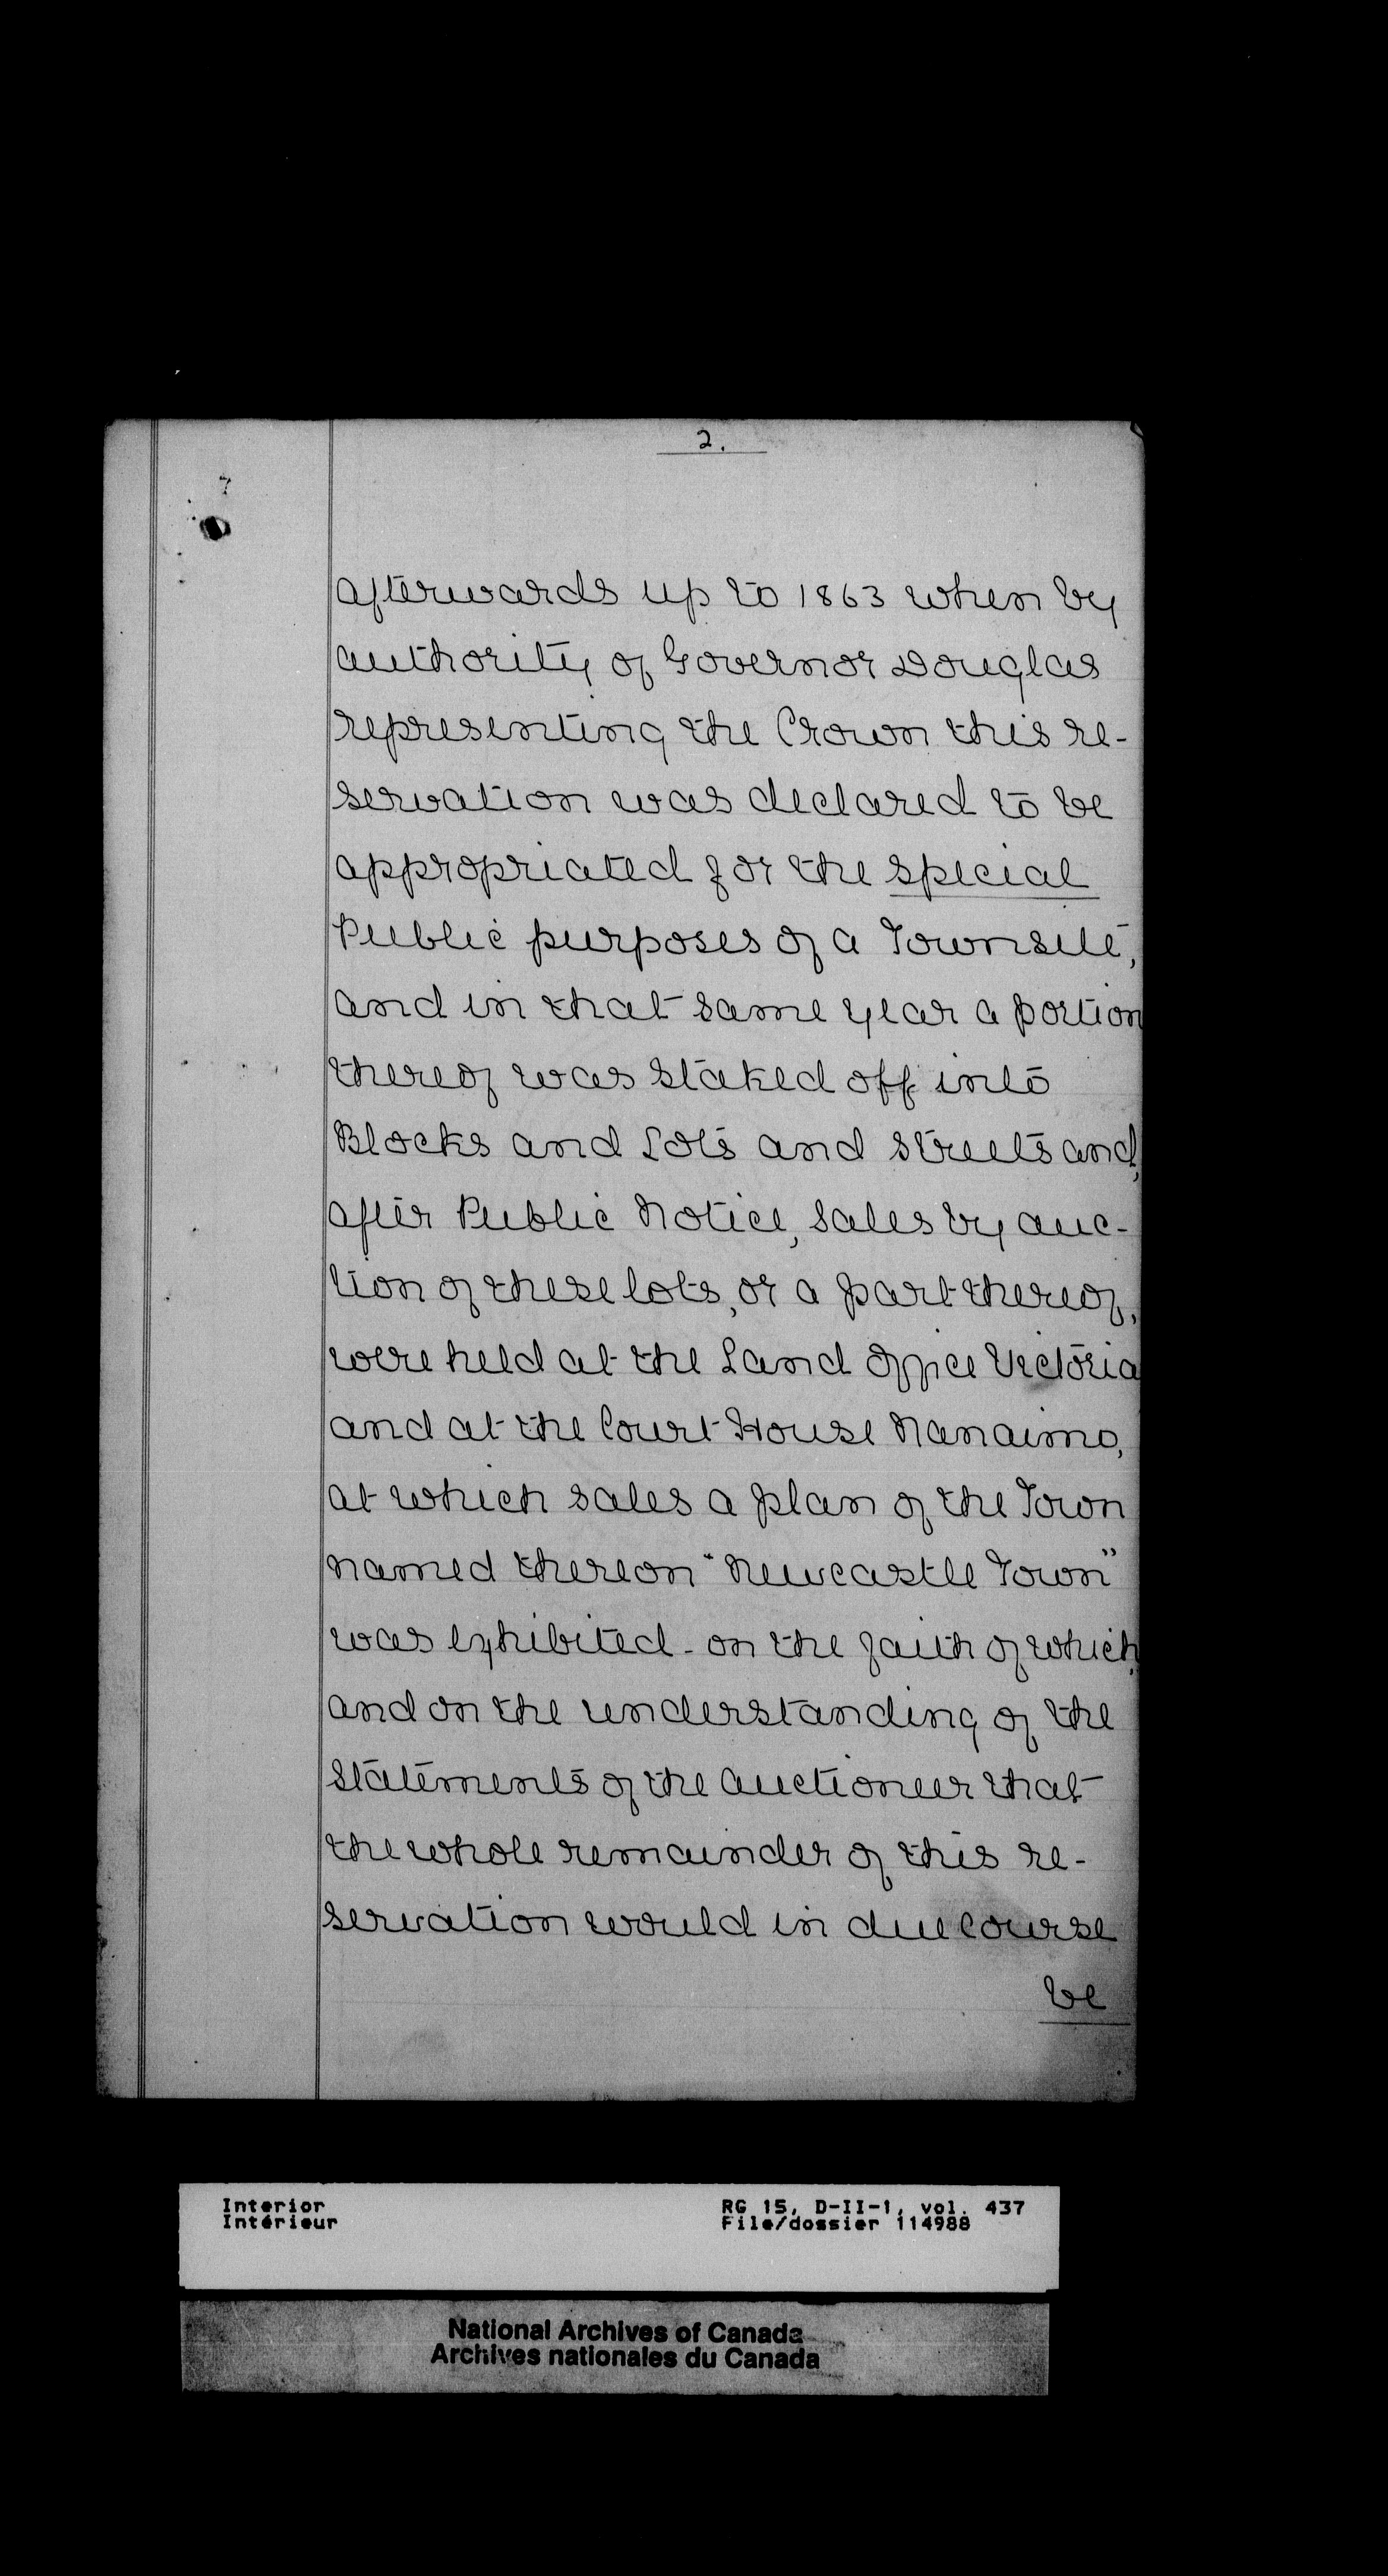 2.
afterwards up to 1863 when by
authority of Governor Douglas
representing the Crown this re-
servation was declared to be
appropriated for the special
Public purposes of a Townsite,
and in that same year a portion
thereof was staked off into
Blocks and Lots and Streets and,
after Public Notice, sales by auc-
tion of these lots, or a part thereof,
were held at the Land Office Victoria
and at the Court House Nanaimo,
at which sales a plan of the Town
named thereon "Newcastle Town"
was exhibited - on the faith of which,
and on the understanding of the
statements of the Auctioneer that
the whole remainder of this re-
servation would in due course
be
Interior
Intérieur
RG 15, D-II-1, vol. 437
File/dossier 114988
National Archives of Canada
Archives nationales du Canada